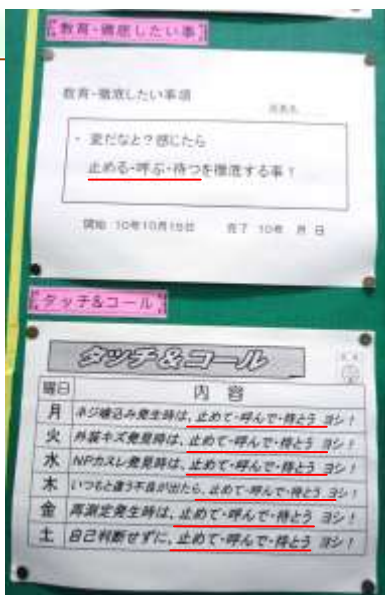 教育・徹底したい事
教育・徹底したい事項
・ 変だなと？感じたら
止める・呼ぶ・待つを徹底する事！
開始 10年10月15日 完了 10年 月 日
タッチ&コール
タッチ&コール
曜日 内容
月 ネジ噛込み発生時は、止めて・呼んで・待とう ヨシ！
火 外装キズ発見時は、止めて・呼んで・待とう ヨシ！
水 NPカスレ発見時は、止めて・呼んで・待とう ヨシ！
木 いつもと違う不良が出たら、止めて・呼んで・待とう ヨシ！
金 再測定発生時は、止めて・呼んで・待とう ヨシ！
土 自己判断せずに、止めて・呼んで・待とう ヨシ！